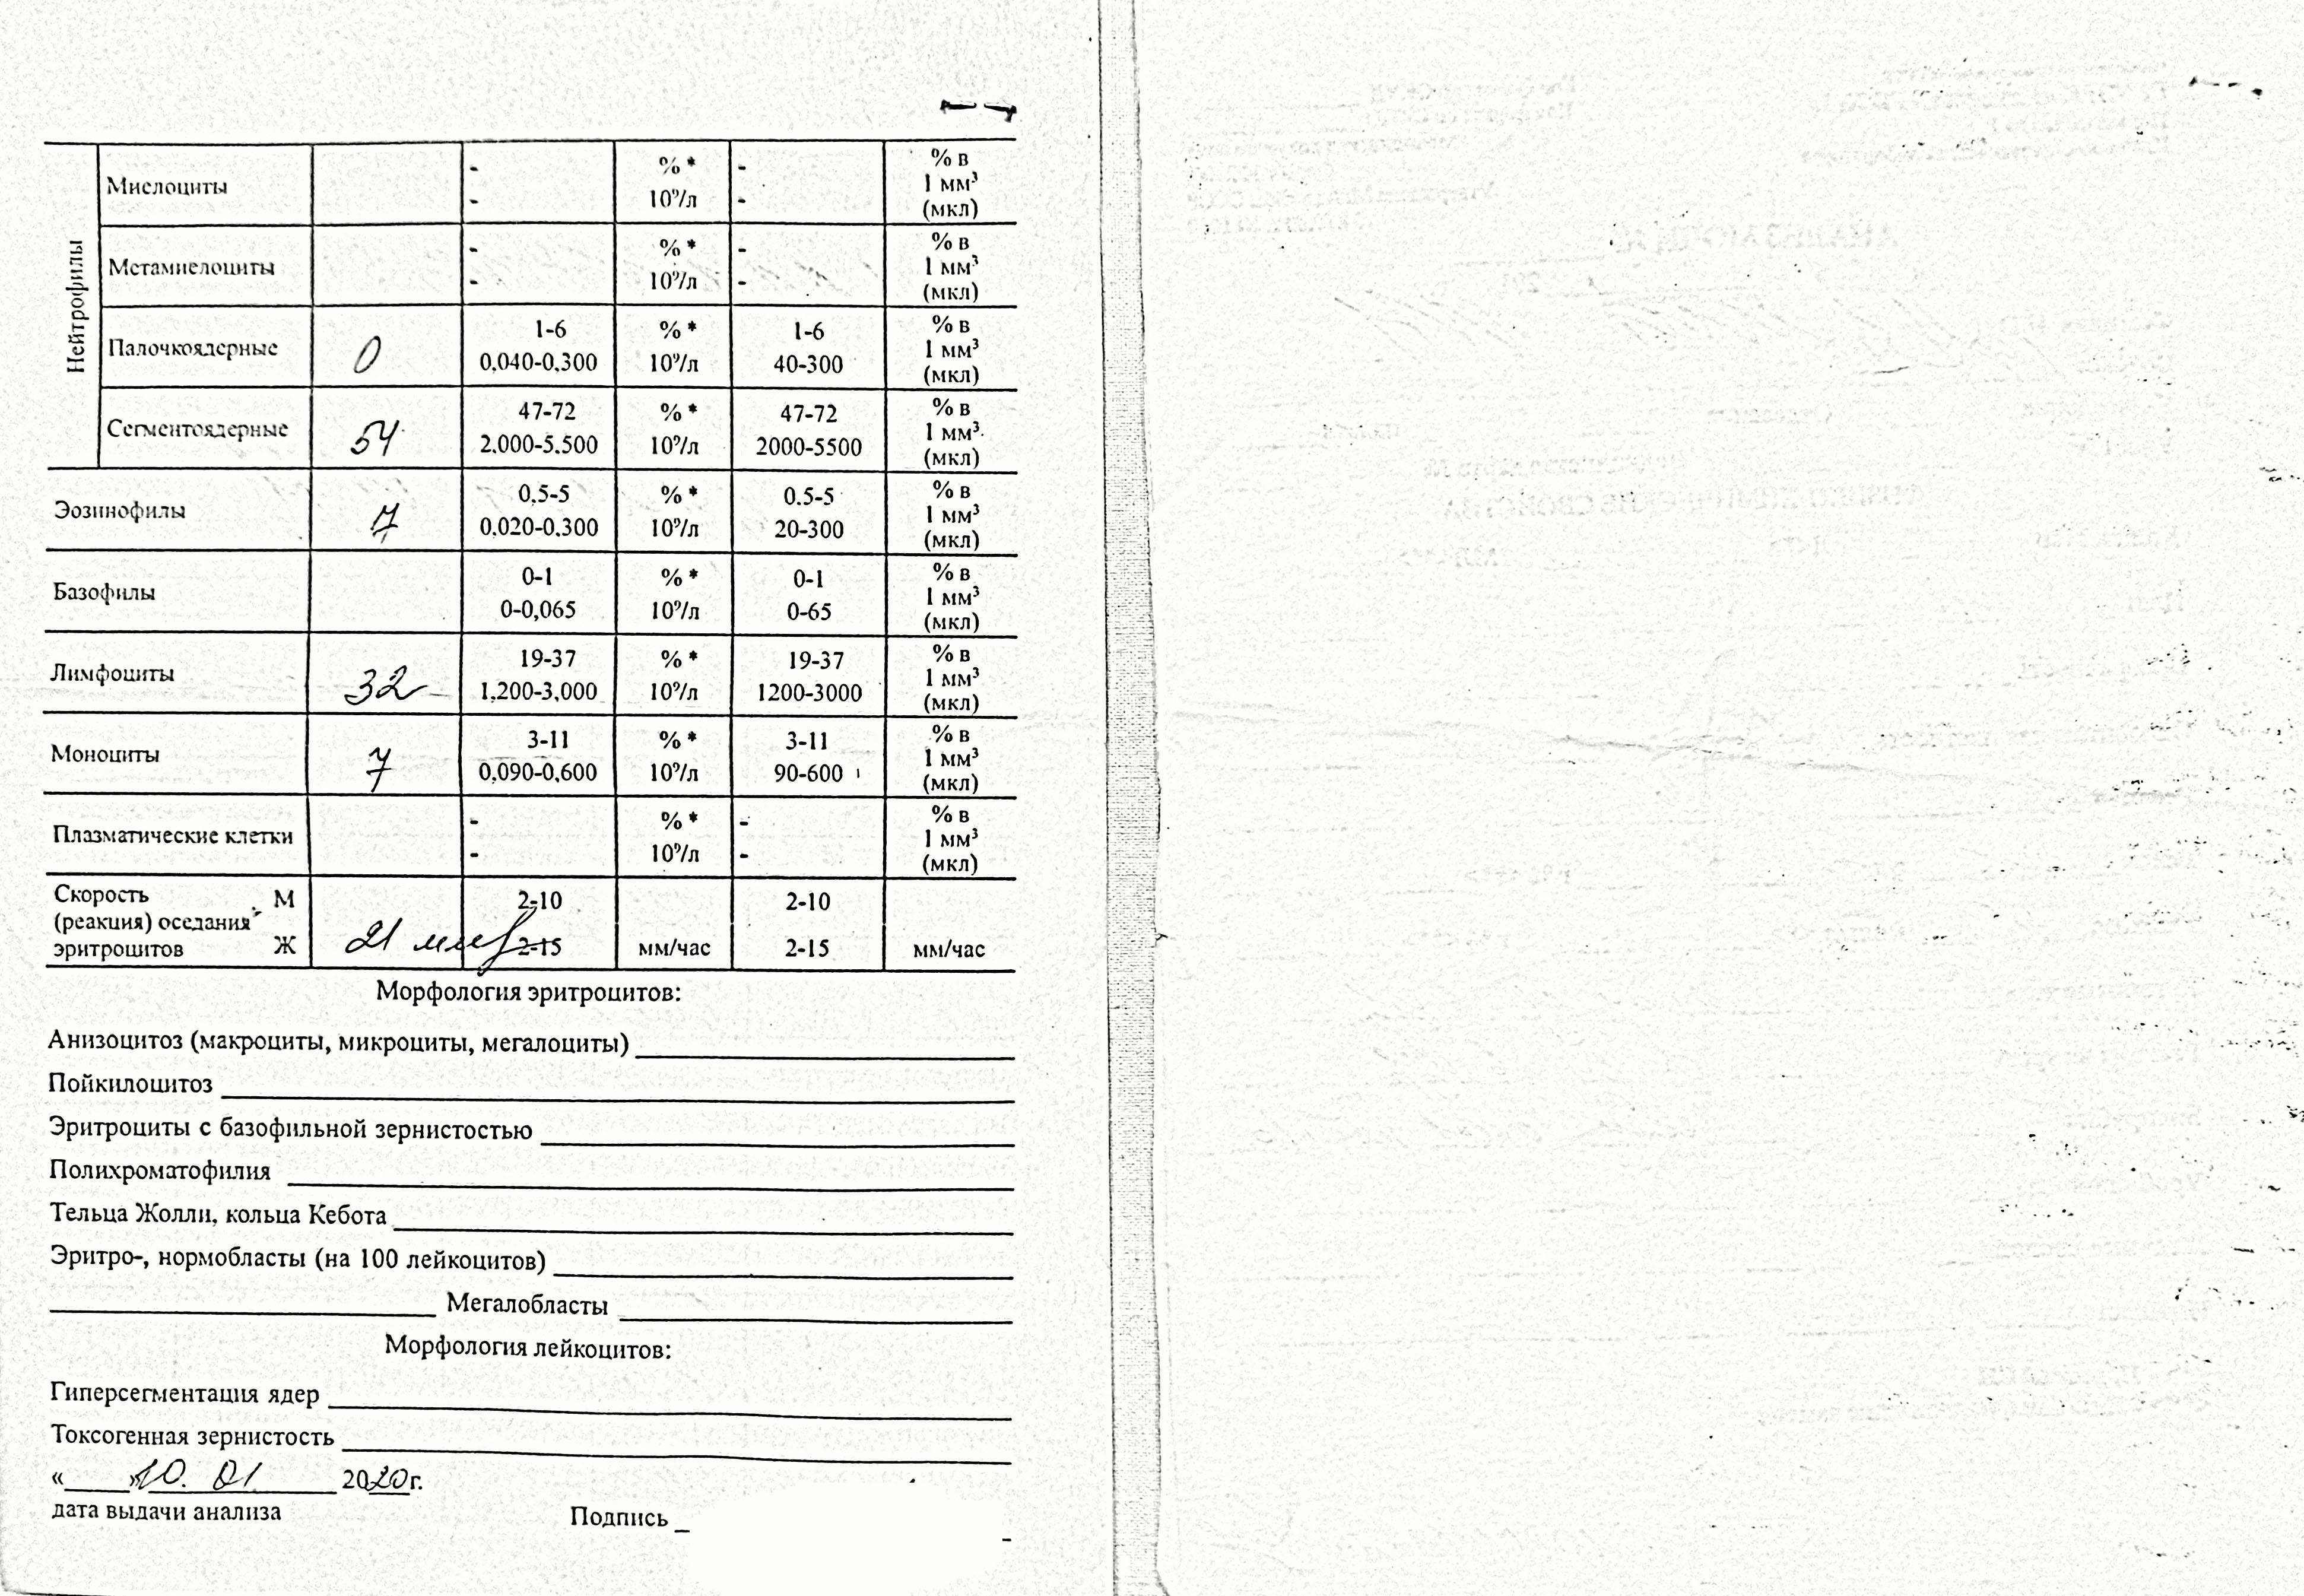 Нейтрофилы
Миелоциты - % * - % в
- 10⁹/л - 1 мм³
(мкл)
Метамиелоциты - % * - % в
- 10⁹/л - 1 мм³
(мкл)
Палочкоядерные 0 1-6 % * 1-6 % в
0,040-0,300 10⁹/л 40-300 1 мм³
(мкл)
Сегментоядерные 54 47-72 % * 47-72 % в
2.000-5.500 10⁹/л 2000-5500 1 мм³
(мкл)
Эозинофилы 7 0,5-5 % * 0.5-5 % в
0,020-0,300 10⁹/л 20-300 1 мм³
(мкл)
Базофилы 0-1 % * 0-1 % в
0-0,065 10⁹/л 0-65 1 мм³
(мкл)
Лимфоциты 32 19-37 % * 19-37 % в
1,200-3,000 10⁹/л 1200-3000 1 мм³
(мкл)
Моноциты 7 3-11 % * 3-11 % в
0,090-0,600 10⁹/л 90-600 1 мм³
(мкл)
Плазматические клетки - % * - % в
- 10⁹/л - 1 мм³
(мкл)
Скорость М 2-10 2-10
(реакция) оседания
эритроцитов Ж 21 мм/ 2-15 мм/час 2-15 мм/час
Морфология эритроцитов:
Анизоцитоз (макроциты, микроциты, мегалоциты)
Пойкилоцитоз
Эритроциты с базофильной зернистостью
Полихроматофилия
Тельца Жолли, кольца Кебота
Эритро-, нормобласты (на 100 лейкоцитов)
Мегалобласты
Морфология лейкоцитов:
Гиперсегментация ядер
Токсогенная зернистость
« » 10. 01 2020г.
дата выдачи анализа Подпись